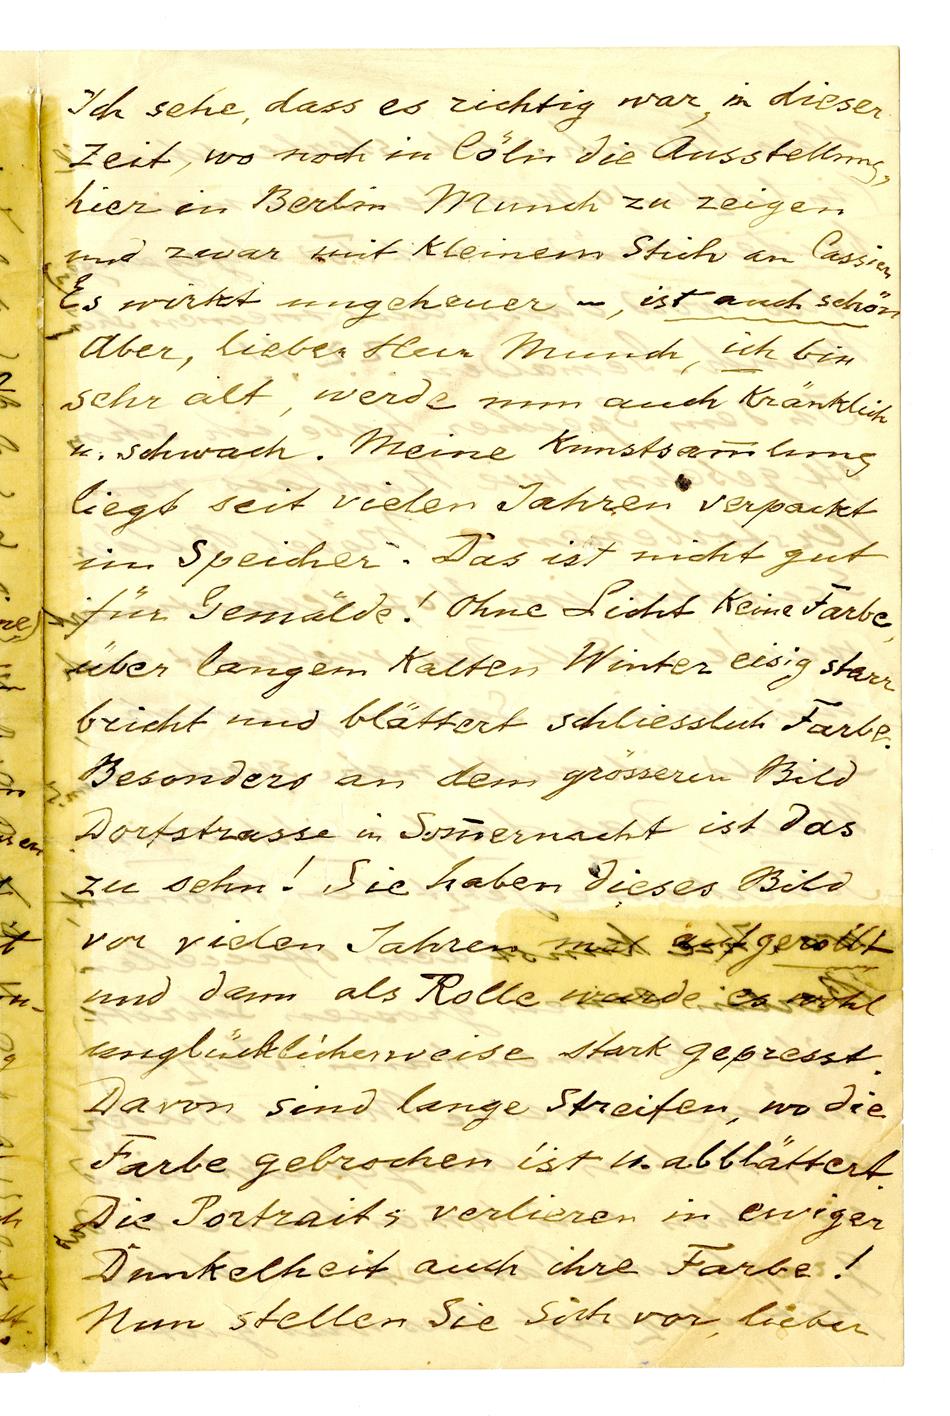 Ich sehe, dass es richtig war, in dieser
Zeit, wo noch in Cöln die Ausstellung,
hier in Berlin Munch zu zeigen
und zwar mit kleinem Stich an Cassierer
Es wirkt ungeheuer –, ist auch schön
Aber, lieber Herr Munch, ich bin
sehr alt, werde nun auch kränklich
u. schwach. Meine Kunstsam̅lung
liegt seit vielen Jahren verpackt
im Speicher. Das ist nicht gut
für Gemälde! Ohne Licht keine Farbe,
über langem kalten Winter eisig starr
bricht und blättert schliesslich Farbe.
Besonders an dem grösseren Bild
Dorfstrasse in Som̅ernacht ist das
zu sehn! Sie haben dieses Bild
vor vielen Jahren mal aufgerollt
und dann als Rolle wurde es wohl
unglücklicherweise stark gepresst.
Davon sind lange Streifen, wo die
Farbe gebrochen ist u. abblättert.
Die Portraits verlieren in ewiger
Dunkelheit auch ihre Farbe!
Nun stellen Sie Sich vor, lieber